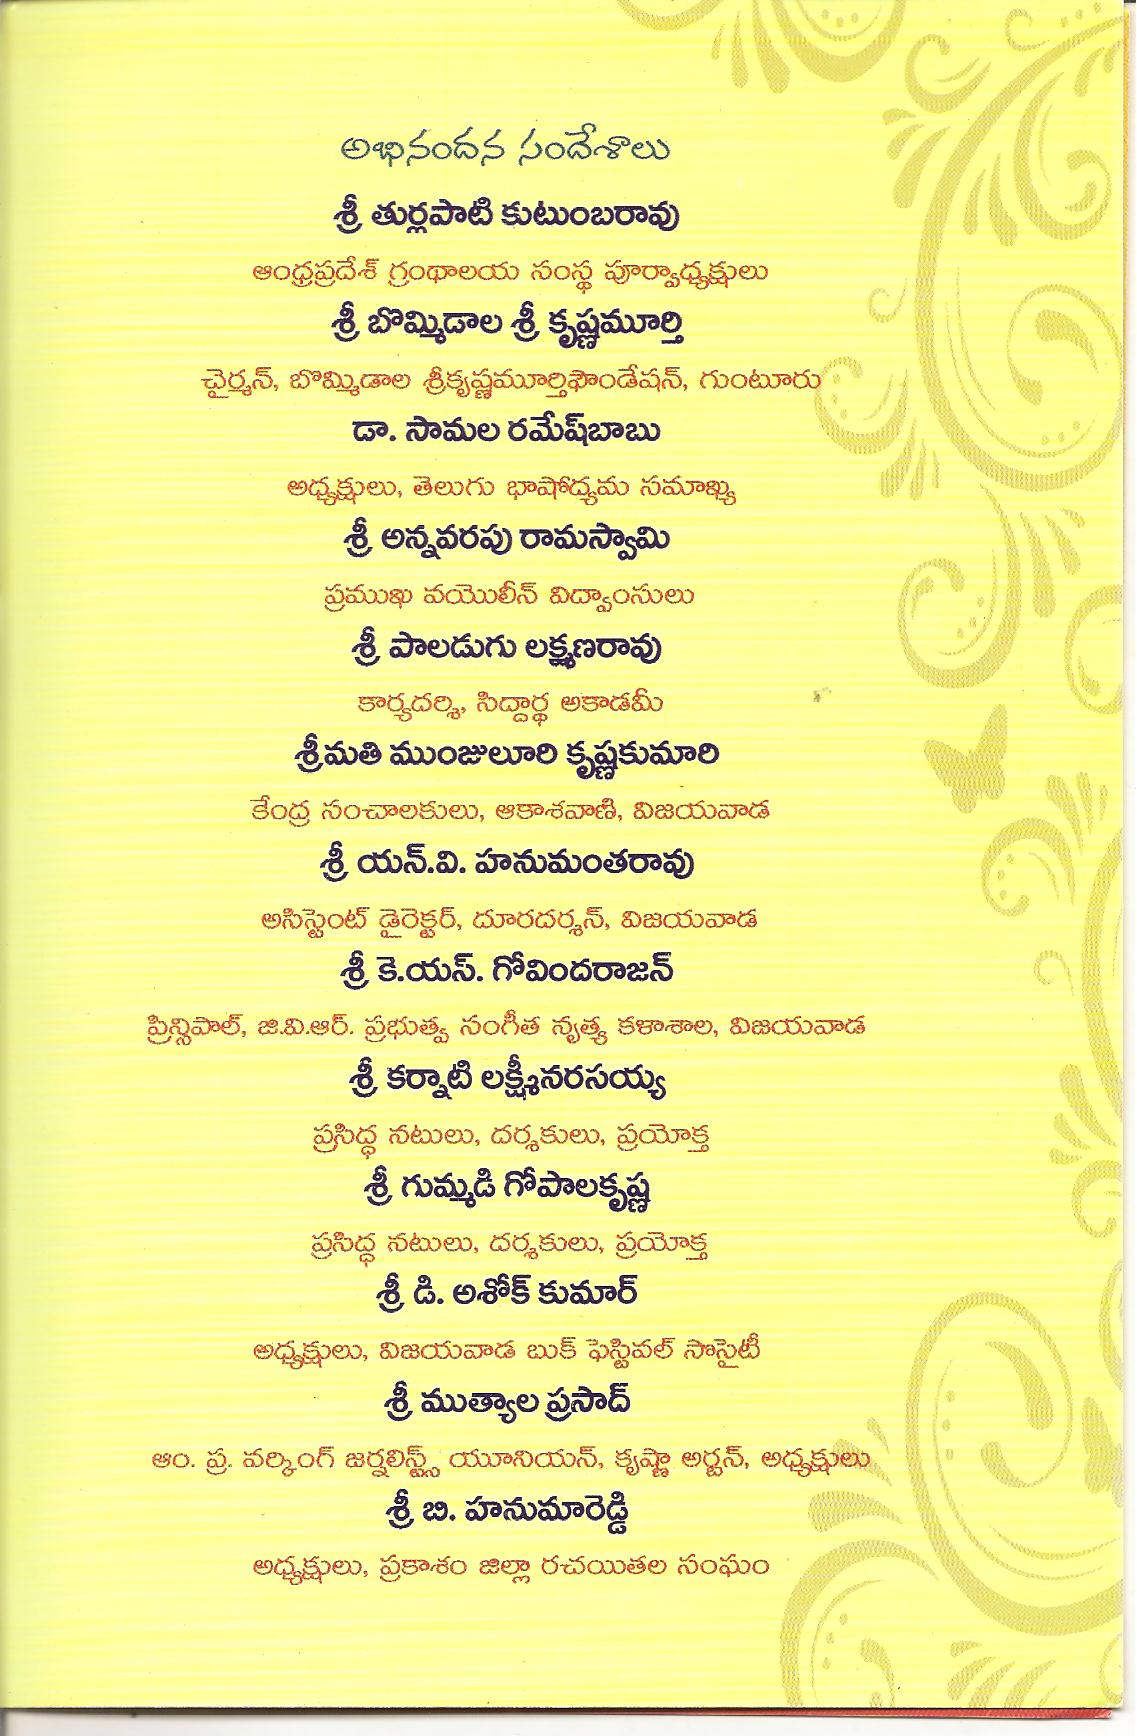 అభినందన సందేశాలు
శ్రీ తుర్లపాటి కుటుంబరావు
ఆంధ్రప్రదేశ్ గ్రంథాలయ సంస్థ పూర్వాధ్యక్షులు
శ్రీ బొమ్మిడాల శ్రీ కృష్ణమూర్తి
చైర్మన్, బొమ్మిడాల శ్రీకృష్ణమూర్తిఫౌండేషన్, గుంటూరు
డా. సామల రమేష్‌బాబు
అధ్యక్షులు, తెలుగు భాషోద్యమ సమాఖ్య
శ్రీ అన్నవరపు రామస్వామి
ప్రముఖ వయొలీన్ విద్వాంసులు
శ్రీ పాలడుగు లక్ష్మణరావు
కార్యదర్శి, సిద్దార్థ అకాడమీ
శ్రీమతి ముంజులూరి కృష్ణకుమారి
కేంద్ర సంచాలకులు, ఆకాశవాణి, విజయవాడ
శ్రీ యన్.వి. హనుమంతరావు
అసిస్టెంట్ డైరెక్టర్, దూరదర్శన్, విజయవాడ
శ్రీ కె.యస్. గోవిందరాజన్
ప్రిన్సిపాల్, జి.వి.ఆర్. ప్రభుత్వ సంగీత నృత్య కళాశాల, విజయవాడ
శ్రీ కర్నాటి లక్ష్మీనరసయ్య
ప్రసిద్ధ నటులు, దర్శకులు, ప్రయోక్త
శ్రీ గుమ్మడి గోపాలకృష్ణ
ప్రసిద్ధ నటులు, దర్శకులు, ప్రయోక్త
శ్రీ డి. అశోక్ కుమార్
అధ్యక్షులు, విజయవాడ బుక్ ఫెస్టివల్ సొసైటీ
శ్రీ ముత్యాల ప్రసాద్
ఆం. ప్ర. వర్కింగ్ జర్నలిస్ట్స్ యూనియన్, కృష్ణా అర్బన్, అధ్యక్షులు
శ్రీ బి. హనుమారెడ్డి
అధ్యక్షులు, ప్రకాశం జిల్లా రచయితల సంఘం